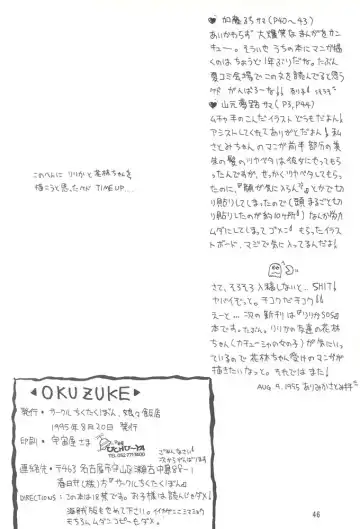 ♥ 加藤まち サマ (P40〜43)
あいかわらず 大爆笑なまんがをサン
キュー。そういや うちの本にマンガ描
くのはちょうど1年ぶりだか。たぶん
夏コミ会場でこの文を読んでると思う
けど がんばろーな!!
♥ 山元夢路 サマ (P3, P44)
ムチャ キのこんだイラストどうもだよん!
アシストしてくれてありがとだよん! 私
さとみちゃんのマンガ前半部分の真
生の髪のツヤベタは彼女にやってもら
ったんですが、せっかくツヤベタしてもらっ
たのに、『顔が気に入らん!!』とかで切
り貼りしてしまったので(頭まるごと切
り貼りしたのが約10ヶ所!)なんか労力
ムダにしてしまってゴメン! もらったイラス
トボード、マジで気に入ってるんだよん!
このへんに リリカと花林ちゃんを
描こうと思ったのが TIME UP.....
さて、そろそろ入稿しないと… SHIT!
ヤバイぞっと。チコクだチコク!!
えーと…次の新刊は『リリカSOS』
本です。たぶん。リリカの友達の花林
ちゃん(カチューシャの女の子)が気にいっ
ているので 花林ちゃん受けのマンガが
描きたいなっと。それではまた!
AUG 9. 1995 ありみかさとみ
◀OKUZUKE▶
発行・サークルちくたくぼん、娘々飯店
1995年8月20日 発行
印刷・宇宙屋さま
ごめんなさい!
次からがんばります
連絡先・〒463 名古屋市守山区瀬古中島98-1
春日井(様)方『サークルちくたくぼん』
DIRECTIONS:この本は18禁です。お子様は読んじゃダメ!
海賊版も せめてダメ!
もちろんムダンコピーもダメ。
46